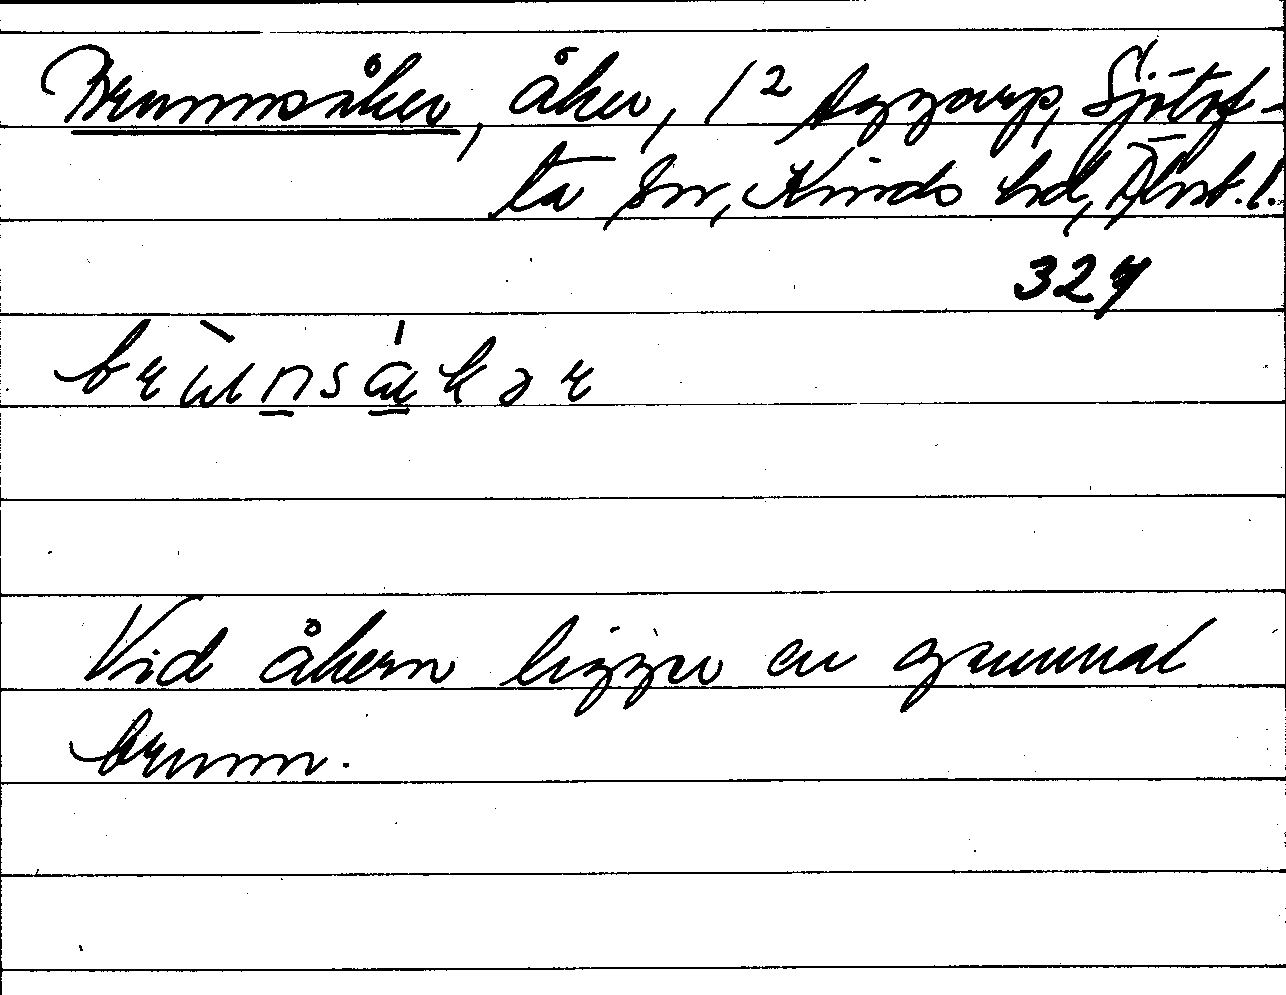 Brunnsåker, åker, 1² Aggarp, Sjötof-
ta sn, Kinds hd, Älvsb. l.
327
brùnsákər
Vid åkern ligger en grumal
brunn.